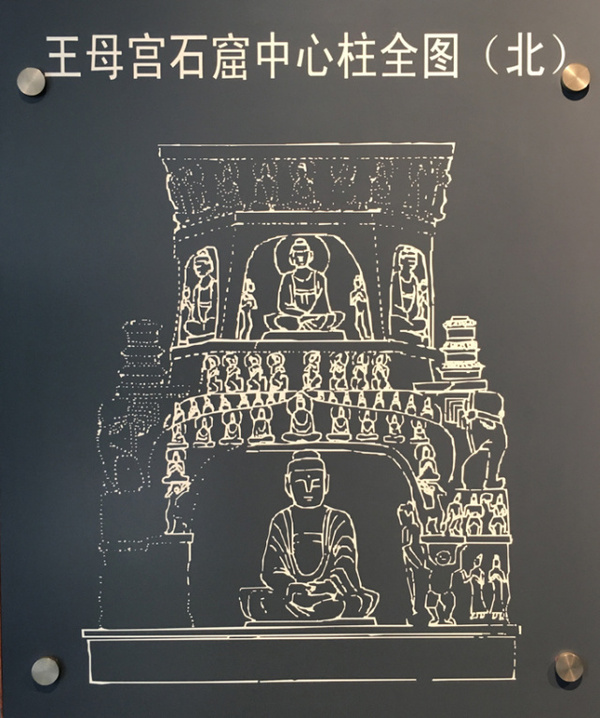 王母宫石窟中心柱全图（北）